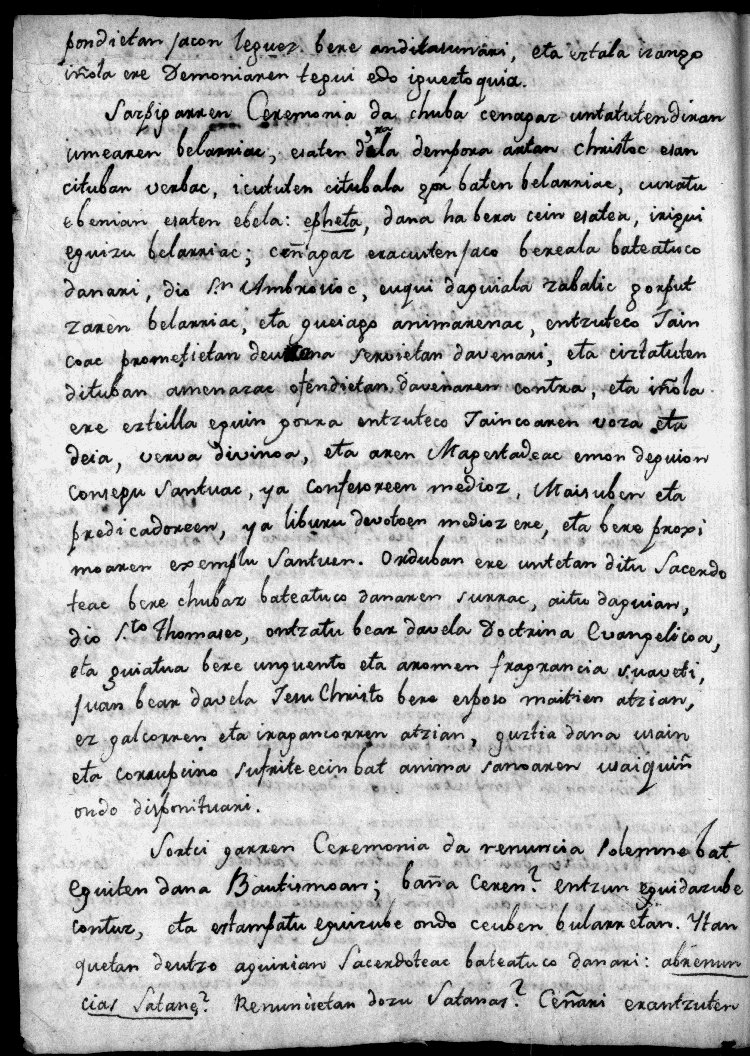 pondietan jacon leguez bere anditasunari, eta eztala izango
iñola ere Demoniaren tegui edo igüertoquia.
Sazpigarren Ceremonia da chuba cenagaz untatutendiran
umearen belarriac, esaten dala dempora artan christoc esan
cituban verbac, icututen citubala gor baten belarriac, curatu
ebenian esaten ebela: epheta, dana ha bera cein esatea, irigui
eguizu belarriac; ceñagaz eracutenjaco bereala bateatuco
danari, dio S.n Ambrosioc, euqui daguiala zabalic gorput
zaren belarriac, eta gueiago animarenac, entzuteco Jain
coac prometietan deutsana servietan davenari, eta cirtatuten
dituban amenazac ofendietan davenaren contra, eta iñola
ere ezteilla eguin gorra entzuteco Jaincoaren voza eta
deia, verva divinoa, eta aren Magestadeac emon deguion
Consegu Santuac, ya Confesoreen medioz, Maisuben eta
predicadoreen, ya liburu devotoen medioz ere, eta bere proxi
moaren exemplu Santuen. Orduban ere untetan ditu Sacerdo
teac bere chubaz bateatuco danaren surrac, aitu daguian,
dio S.to Thomasec, ontzatu bear davela Doctrina Evangelicoa,
eta guiatua bere unguento eta aromen fragrancia suaveti,
juan bear davela Jesu Christo bere esposo maitien atzian,
ez galcorren eta iragancorren atzian, guztia dana usain
eta corrupcino sufriteecin bat anima sanoaren usaiquiñ
ondo disponituari.
Sortci garren Ceremonia da renuncia solemne bat
eguiten dana Bautismoan; baña Ceren? entzun eguidazube
contuz, eta estampatu eguizube ondo ceuben bularretan. Ytan
quetan deutso aguirian Sacerdoteac bateatuco danari: abrenun
cias Satanę? Renuncietan dozu Satanas? Ceñari erantzuten